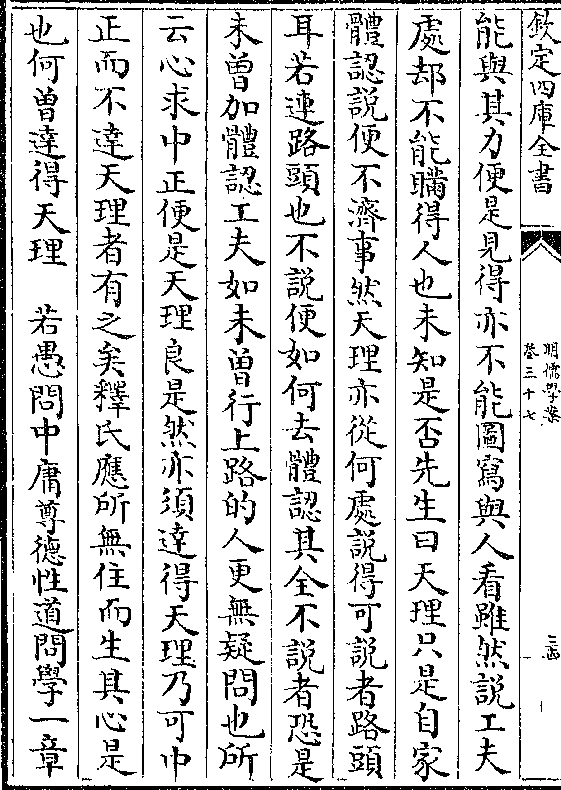 欽定四庫全書
明儒學案
卷三十七
能與其力便是見得亦不能圖寫與人看雖然說工夫
處却不能瞞得人也未知是否先生曰天理只是自家
體認說便不濟事然天理亦從何處說得可說者路頭
耳若連路頭也不說便如何去體認其全不說者恐是
未曾加體認工夫如未曾行上路的人更無疑問也所
云心求中正便是天理良是然亦須達得天理乃可中
正而不達天理者有之矣釋氏應所無住而生其心是
也何曽達得天理　若愚問中庸尊德性道問學一章